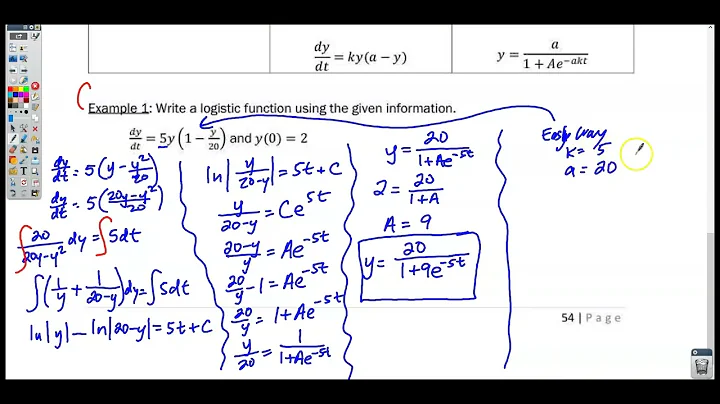 dy/dt = ky(a − y)
y = a/(1 + Ae^(−akt))
Example 1: Write a logistic function using the given information.
dy/dt = 5y(1 − y/20) and y(0) = 2
dy/dt = 5(y − y²/20)
dy/dt = 5((20y−y²)/20)
∫ 20/(20y−y²) dy = ∫ 5dt
∫(1/y + 1/(20−y))dy = ∫5dt
ln|y| − ln|20−y| = 5t + C
ln|y/(20−y)| = 5t + C
y/(20−y) = Ce^(5t)
(20−y)/y = Ae^(−5t)
20/y − 1 = Ae^(−5t)
20/y = 1 + Ae^(−5t)
y/20 = 1/(1+Ae^(−5t))
y = 20/(1+Ae^(−5t))
2 = 20/(1+A)
A = 9
y = 20/(1+9e^(−5t))
Easy Way
k = 5
a = 20
54 | Page